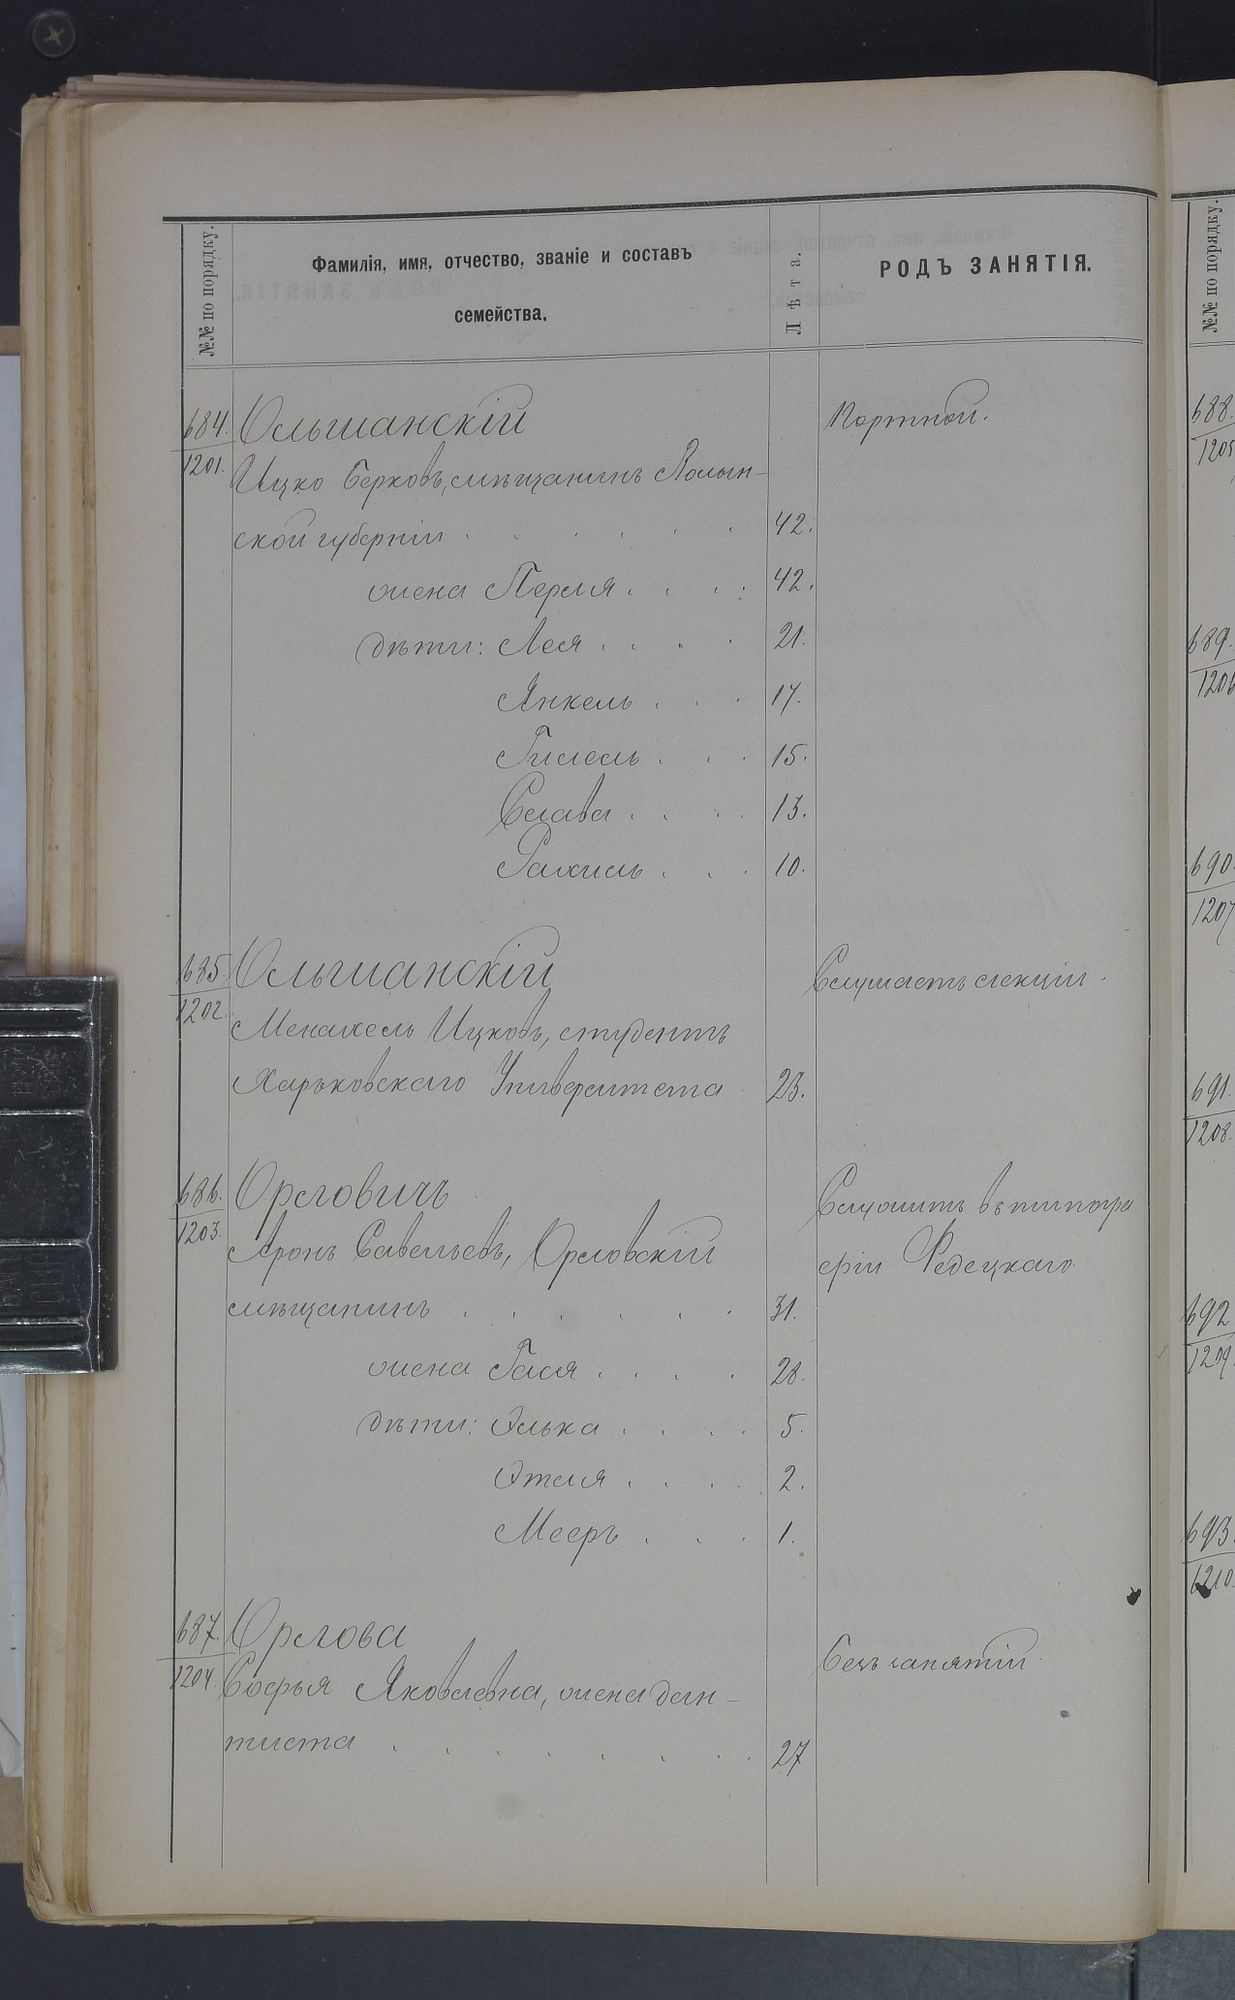 №№ по порядку.
Фамилія, имя, отчество, званіе и составъ
семейства.
Лѣта.
РОДЪ ЗАНЯТІЯ.
№№ по порядку.
684. Ольшанскій Портной.
1201. Ицко Берковъ, мѣщанинъ Волын-
ской губерніи . . . . . . 42.
жена Перля . . . . 42.
дѣти: Лея . . . . 21.
Янкель . . . 17.
Гилель . . . 15.
Слава . . . . 13.
Рахиль . . . 10.
685. Ольшанскій Слушаетъ лекціи.
1202. Менахель Ицковъ, студентъ
Харьковскаго Университета 23.
686. Орловичъ Служитъ въ типогра
1203. Аронъ Савельевъ, Орловскій фіи Редецкаго
мѣщанинъ . . . . . . 31.
жена Гася . . . . 28.
дѣти: Элька . . . . 5.
Этля . . . . 2.
Мееръ . . . 1.
687. Орлова Безъ занятій.
1204. Софья Яковлевна, жена дан-
тиста . . . . . . . . 27
688.
1205
689.
1206
690.
1207
691.
1208.
692
1209.
693.
1210.